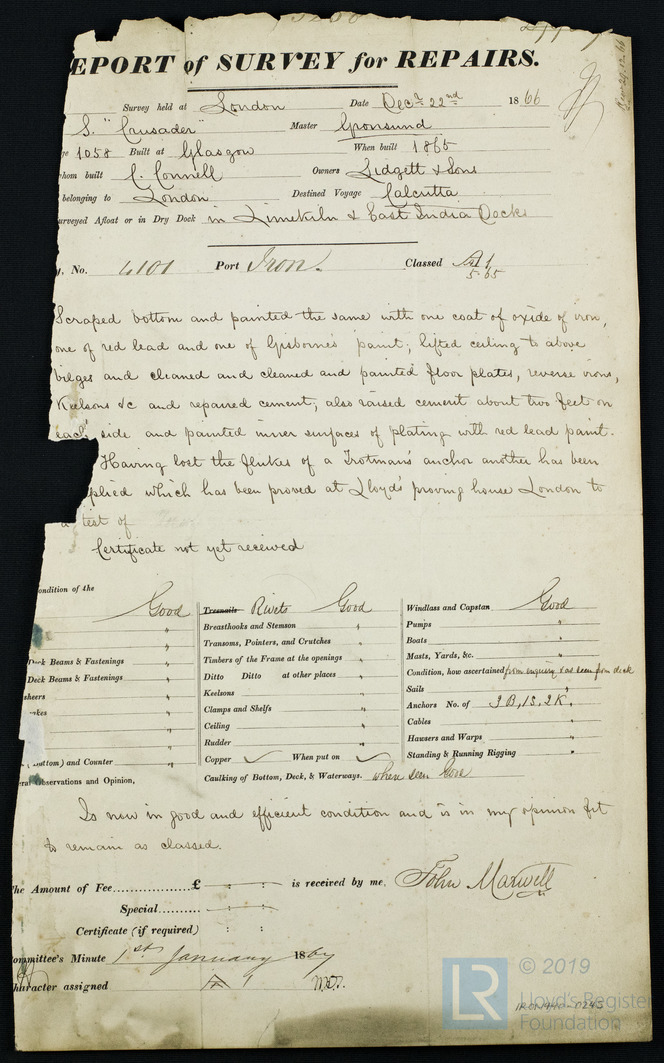 EPORT of SURVEY for REPAIRS.
Survey held at London Date Decr 22nd 1866
S. "Crusader" Master Gronsund
ge 1058 Built at Glasgow When built 1865
hom built C. Connell Owners Lidgett & Sons
belonging to London Destined Voyage Calcutta
urveyed Afloat or in Dry Dock in Limekiln & East India Docks
. No. 4101 Port Iron. Classed A1
5.65
Scraped bottom and painted the same with one coat of oxide of iron,
one of red lead and one of Gisborne's paint; lifted ceiling to above
bilges and cleaned and cleaned and painted floor plates, reverse irons,
Keelsons &c and repaired cement; also raised cement about two feet on
each side and painted inner surfaces of plating with red lead paint.
Having lost the flukes of a Trotman's anchor another has been
plied which has been proved at Lloyd's proving house London to
a test of
Certificate not yet received
ondition of the
Good
"
"
Deck Beams & Fastenings "
Deck Beams & Fastenings "
sheers "
"
"
"
(Bottom) and Counter "
Treenails Rivets Good
Breasthooks and Stemson "
Transoms, Pointers, and Crutches "
Timbers of the Frame at the openings "
Ditto Ditto at other places "
Keelsons "
Clamps and Shelfs "
Ceiling "
Rudder "
Copper ✓ When put on ✓
Windlass and Capstan Good
Pumps "
Boats "
Masts, Yards, &c. "
Condition, how ascertained from enquiry & as seen from deck
Sails "
Anchors No. of 3B, 1S, 2K.
Cables "
Hawsers and Warps "
Standing & Running Rigging "
ral Observations and Opinion,
Caulking of Bottom, Deck, & Waterways. where seen Good
Is now in good and efficient condition and is in my opinion fit
to remain as classed.
he Amount of Fee............... £ : : is received by me, John Maxwell
Special.......... : :
Certificate (if required) : :
ommittee's Minute 1st January 1867
haracter assigned A 1
LR © 2019
Lloyd's Register
Foundation
IRON440-0245